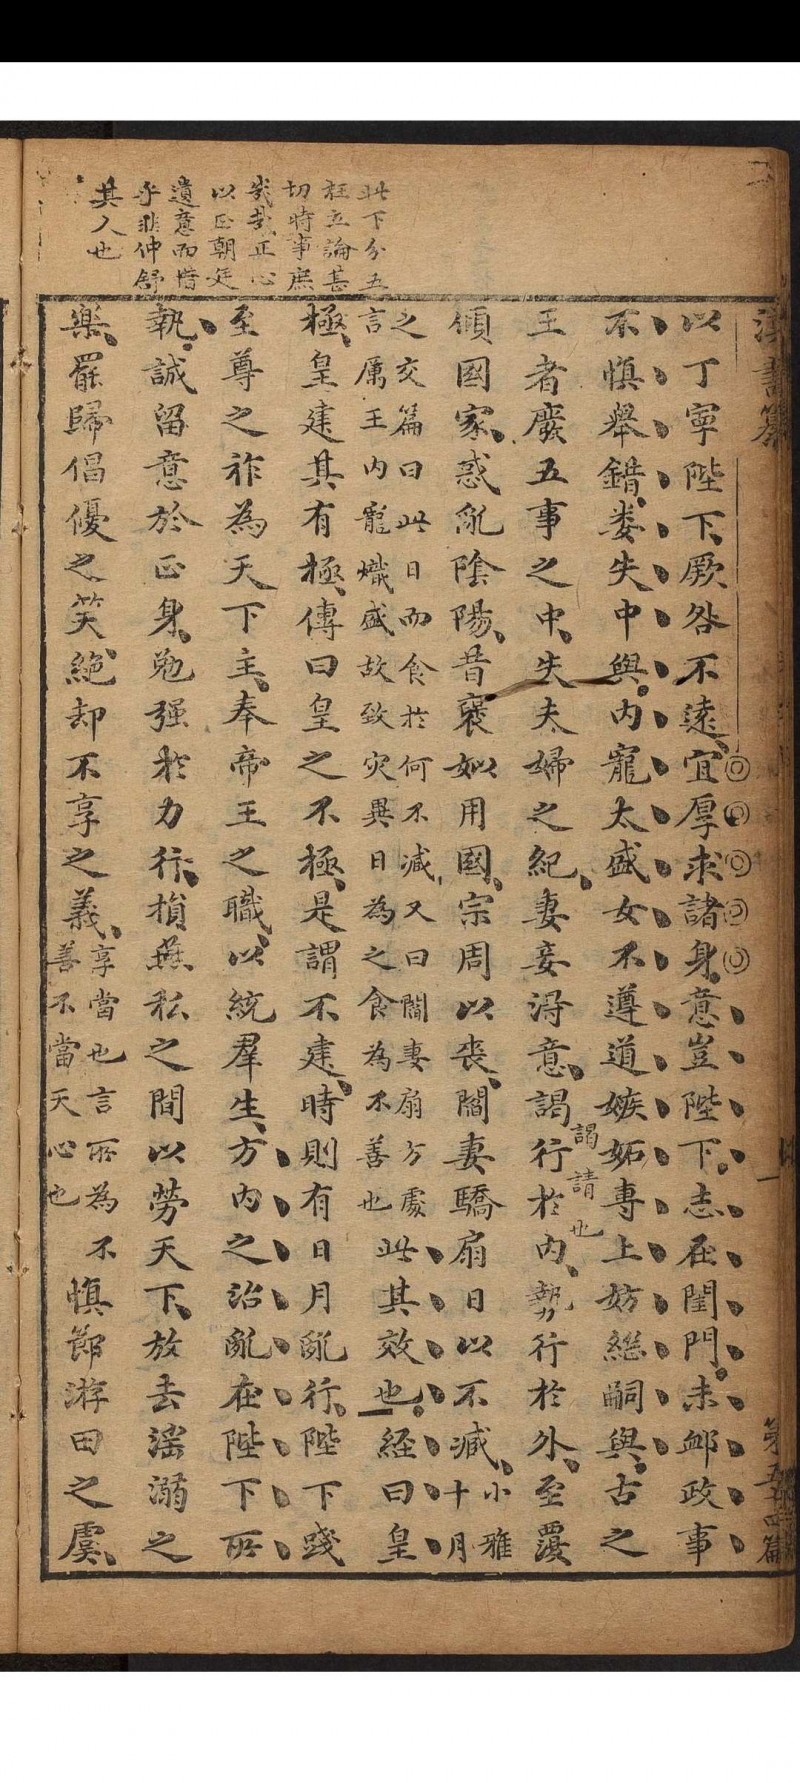 此下分五
柱立論甚
切時事庶
幾哉正心
以正朝廷
遺意而惜
乎非仲舒
其人也
漢書纂
第五十四篇
以丁寧陛下厥咎不遠宜厚求諸身意豈陛下志在閨門未䘏政事
不慎舉錯婁失中與內寵太盛女不遵道嫉妬專上妨繼嗣與古之
王者廢五事之中失夫婦之紀妻妾得意謁行於內勢行於外至覆
謁請也
傾國家惑亂陰陽昔襃姒用國宗周以喪閻妻驕扇日以不臧小雅
十月
之交篇曰此日而食於何不臧又曰閻妻扇方處
言厲王內寵熾盛故致灾異日為之食為不善也
此其效也經曰皇
極皇建其有極傳曰皇之不極是謂不建時則有日月亂行陛下踐
至尊之祚為天下主奉帝王之職以統羣生方內之治亂在陛下所
執誠留意於正身勉强於力行損燕私之間以勞天下放去淫溺之
樂罷歸倡優之笑絕却不享之義享當也言所為不
善不當天心也
慎節游田之虞